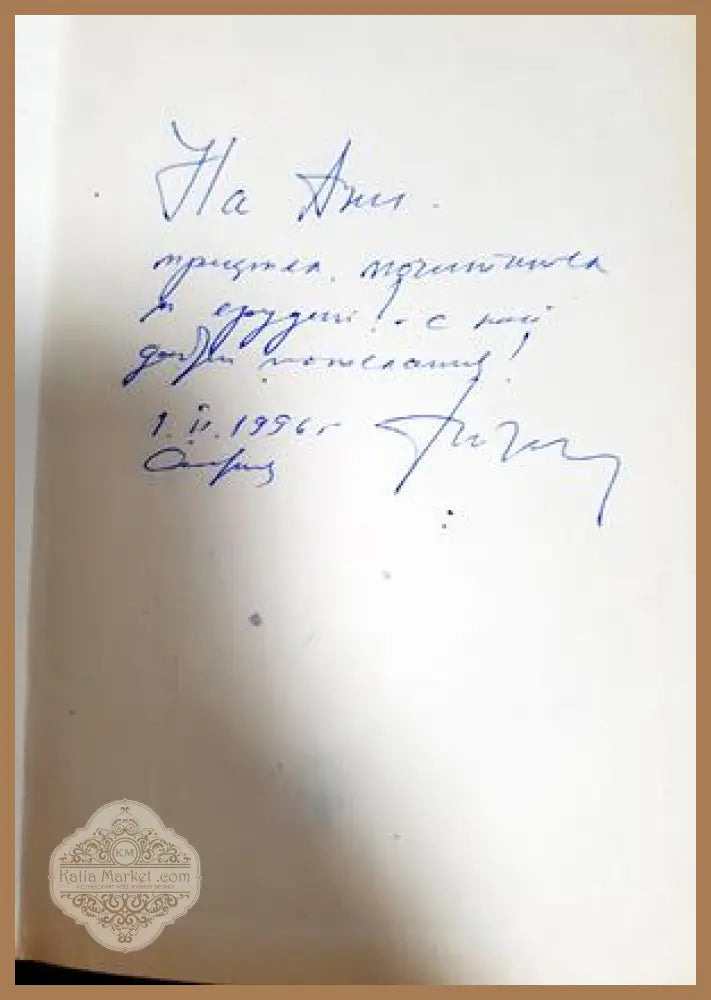 На Ани
приятел, почитател
и ерудит! - с най
добри пожелания!
1.II.1996 г
София
KM
Kalia Market .com